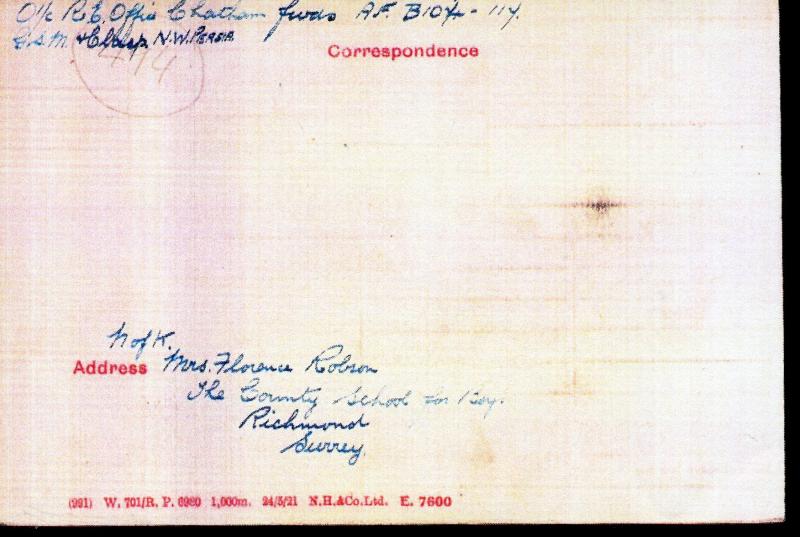 O/c R.E. Office Chatham fwds A.F. B104-117.
G.S.M. & Clasp. N.W. PERSIA
474
Correspondence
N of K.
Address Mrs. Florence Robson
The County School for Boy.
Richmond
Surrey.
(991) W. 701/R. P. 6980 1,000m. 24/5/21 N.H.&Co.Ltd. E. 7600